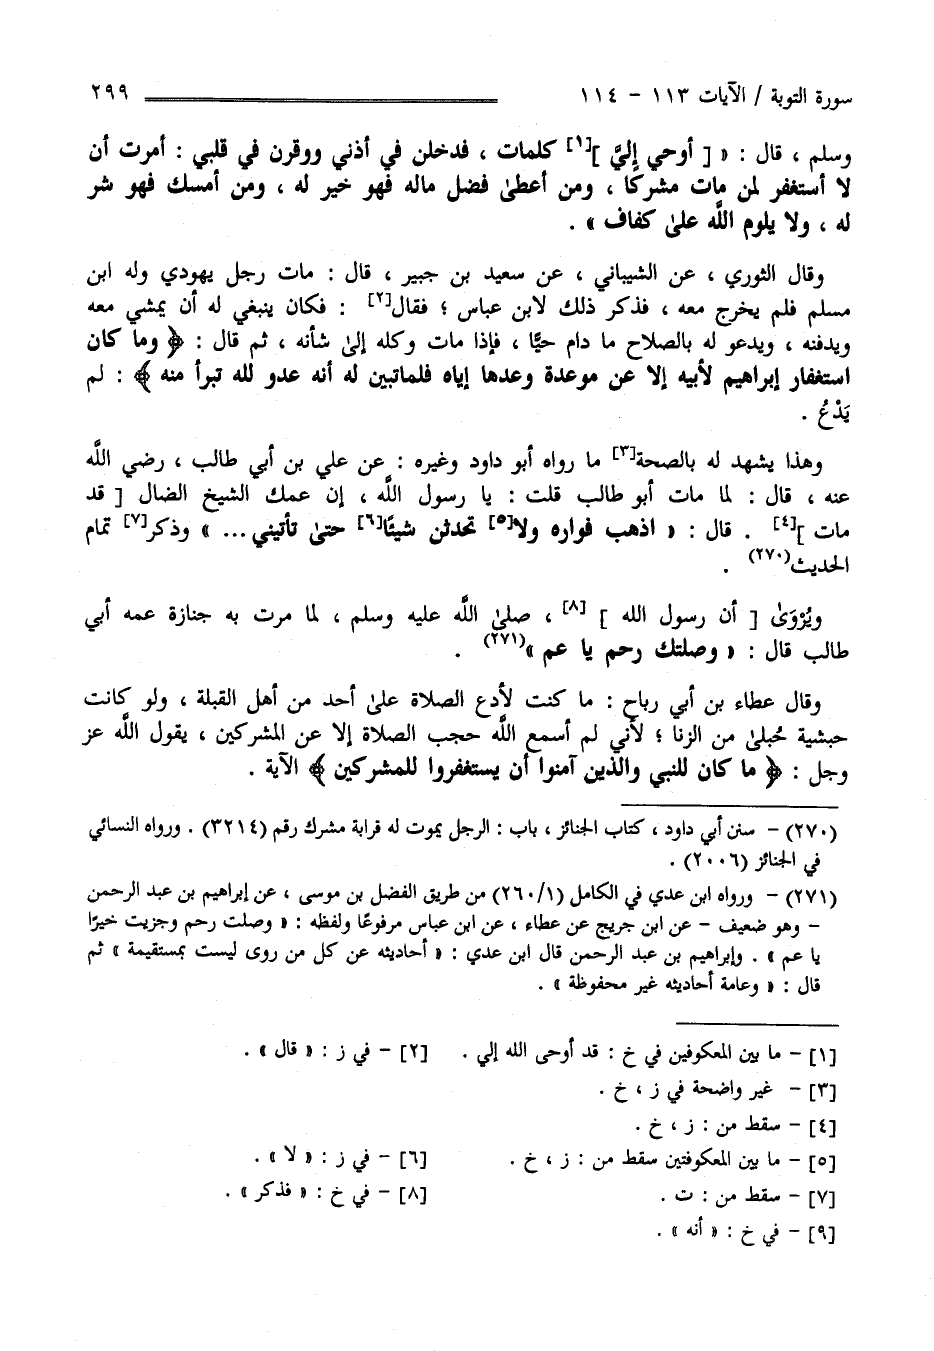 سورة التوبة / الآيات ١١٣ - ١١٤ ٢٩٩
وسلم ، قال : « [ أوحي إليَّ ][١] كلمات ، فدخلن في أذني ووقرن في قلبي : أمرت أن
لا أستغفر لمن مات مشركًا ، ومن أعطىٰ فضل ماله فهو خير له ، ومن أمسك فهو شر
له ، ولا يلوم اللَّه علىٰ كفاف » .
وقال الثوري ، عن الشيباني ، عن سعيد بن جبير ، قال : مات رجل يهودي وله ابن
مسلم فلم يخرج معه ، فذكر ذلك لابن عباس ؛ فقال[٢] : فكان ينبغي له أن يمشي معه
ويدفنه ، ويدعو له بالصلاح ما دام حيًّا ، فإذا مات وكله إلىٰ شأنه ، ثم قال : ﴿ وما كان
استغفار إبراهيم لأبيه إلا عن موعدة وعدها إياه فلماتبين له أنه عدو لله تبرأ منه ﴾ : لم
يَدْعُ .
وهذا يشهد له بالصحة[٣] ما رواه أبو داود وغيره : عن علي بن أبي طالب ، رضي اللَّه
عنه ، قال : لما مات أبو طالب قلت : يا رسول اللَّه ، إن عمك الشيخ الضال [ قد
مات ][٤] . قال : « اذهب فواره ولا[٥] تحدثن شيئًا[٦] حتىٰ تأتيني ... » وذكر[٧] تمام
الحديث(٢٧٠) .
ويُرْوَىٰ [ أن رسول الله ] [٨] ، صلىٰ اللَّه عليه وسلم ، لما مرت به جنازة عمه أبي
طالب قال : « وصلتك رحم يا عم »(٢٧١) .
وقال عطاء بن أبي رباح : ما كنت لأدع الصلاة علىٰ أحد من أهل القبلة ، ولو كانت
حبشية حُبلىٰ من الزنا ؛ لأني لم أسمع اللَّه حجب الصلاة إلا عن المشركين ، يقول اللَّه عز
وجل : ﴿ ما كان للنبي والذين آمنوا أن يستغفروا للمشركين ﴾ الآية .
(٢٧٠) - سنن أبي داود ، كتاب الجنائز ، باب : الرجل يموت له قرابة مشرك رقم (٣٢١٤) . ورواه النسائي
في الجنائز (٢٠٠٦) .
(٢٧١) - ورواه ابن عدي في الكامل (٢٦٠/١) من طريق الفضل بن موسى ، عن إبراهيم بن عبد الرحمن
- وهو ضعيف - عن ابن جريج عن عطاء ، عن ابن عباس مرفوعًا ولفظه : « وصلت رحم وجزيت خيرًا
يا عم » . وإبراهيم بن عبد الرحمن قال ابن عدي : « أحاديثه عن كل من روى ليست بمستقيمة » ثم
قال : « وعامة أحاديثه غير محفوظة » .
[١] - ما بين المعكوفين في خ : قد أوحى الله إلي . [٢] - في ز : « قال » .
[٣] - غير واضحة في ز ، خ .
[٤] - سقط من : ز ، خ .
[٥] - ما بين المعكوفتين سقط من : ز ، خ . [٦] - في ز : « لا » .
[٧] - سقط من : ت . [٨] - في خ : « فذكر » .
[٩] - في خ : « أنه » .